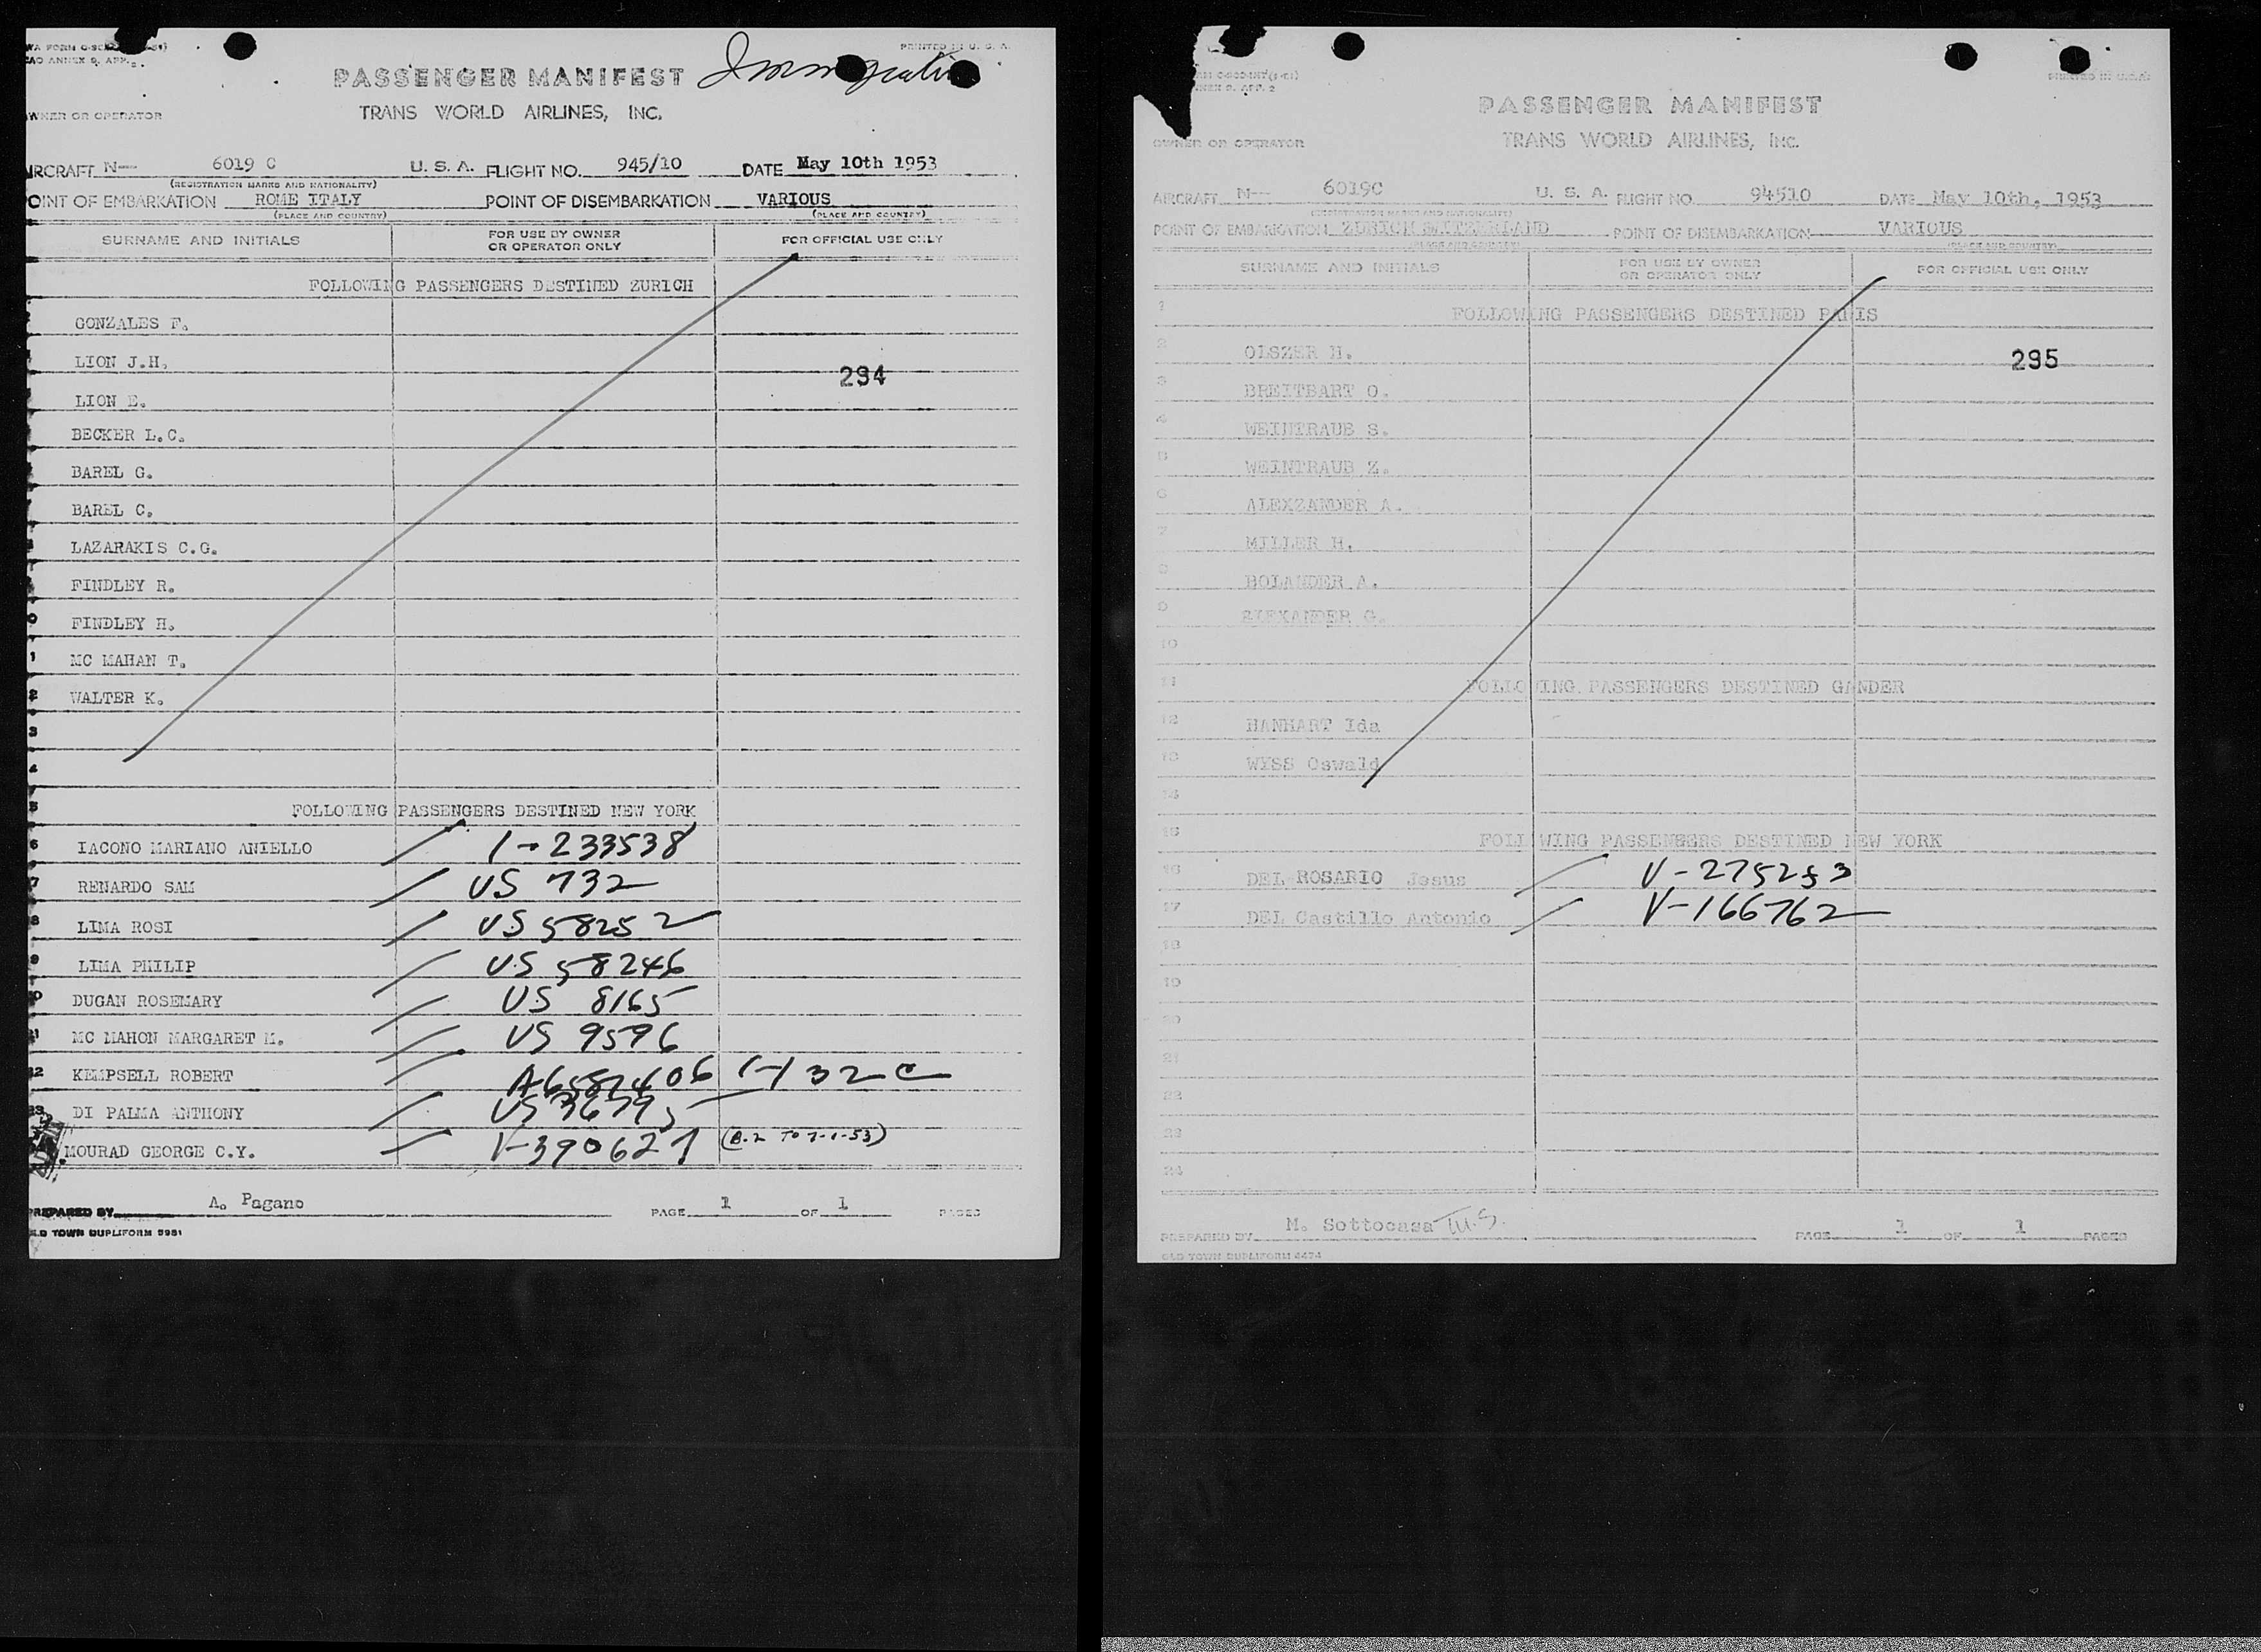 PRINTED IN U. S. A.
PASSENGER MANIFEST Immigration
TRANS WORLD AIRLINES, INC.
OWNER OR OPERATOR
AIRCRAFT N— 6019 C U. S. A. FLIGHT NO. 945/10 DATE May 10th 1953
(REGISTRATION MARKS AND NATIONALITY)
POINT OF EMBARKATION ROME ITALY POINT OF DISEMBARKATION VARIOUS
(PLACE AND COUNTRY) (PLACE AND COUNTRY)
SURNAME AND INITIALS FOR USE BY OWNER OR OPERATOR ONLY FOR OFFICIAL USE ONLY
FOLLOWING PASSENGERS DESTINED ZURICH
GONZALES F.
LION J.H.
294
LION E.
BECKER L.C.
BAREL G.
BAREL C.
LAZARAKIS C.G.
FINDLEY R.
0 FINDLEY H.
1 MC MAHAN T.
2 WALTER K.
3
4
5 FOLLOWING PASSENGERS DESTINED NEW YORK
6 IACONO MARIANO ANIELLO 1-233538
7 RENARDO SAM US 732
8 LIMA ROSI US 58252
9 LIMA PHILIP US 58246
0 DUGAN ROSEMARY US 8165
21 MC MAHON MARGARET M. US 9596
22 KEMPSELL ROBERT A6587406
23 DI PALMA ANTHONY US 36795
MOURAD GEORGE C.Y. V-390627 (B.2 TO 7-1-53)
PREPARED BY A. Pagano PAGE 1 OF 1 PAGES
OLD TOWN DUPLIFORM 5981
PRINTED IN U.S.A.
PASSENGER MANIFEST
TRANS WORLD AIRLINES, INC.
OWNER OR OPERATOR
AIRCRAFT N-- 6019C U. S. A. FLIGHT NO. 94510 DATE May 10th, 1953
(REGISTRATION MARKS AND NATIONALITY)
POINT OF EMBARKATION ZURICH SWITZERLAND POINT OF DISEMBARKATION VARIOUS
(PLACE AND COUNTRY) (PLACE AND COUNTRY)
SURNAME AND INITIALS FOR USE BY OWNER OR OPERATOR ONLY FOR OFFICIAL USE ONLY
1 FOLLOWING PASSENGERS DESTINED PARIS
2 OLSZER H. 295
3 BREITBART O.
4 WEINTRAUB S.
5 WEINTRAUB Z.
6 ALEXZANDER A.
7 MILLER H.
8 BOLANDER A.
9 ALEXANDER G.
10
11 FOLLOWING PASSENGERS DESTINED GANDER
12 HANHART Ida
13 WYSS Oswald
14
15 FOLLOWING PASSENGERS DESTINED NEW YORK
16 DEL ROSARIO Jesus V-275253
17 DEL Castillo Antonio V-166762
18
19
20
21
22
23
24
PREPARED BY M. Sottocasa M.S. PAGE 1 OF 1 PAGES
OLD TOWN DUPLIFORM 4474